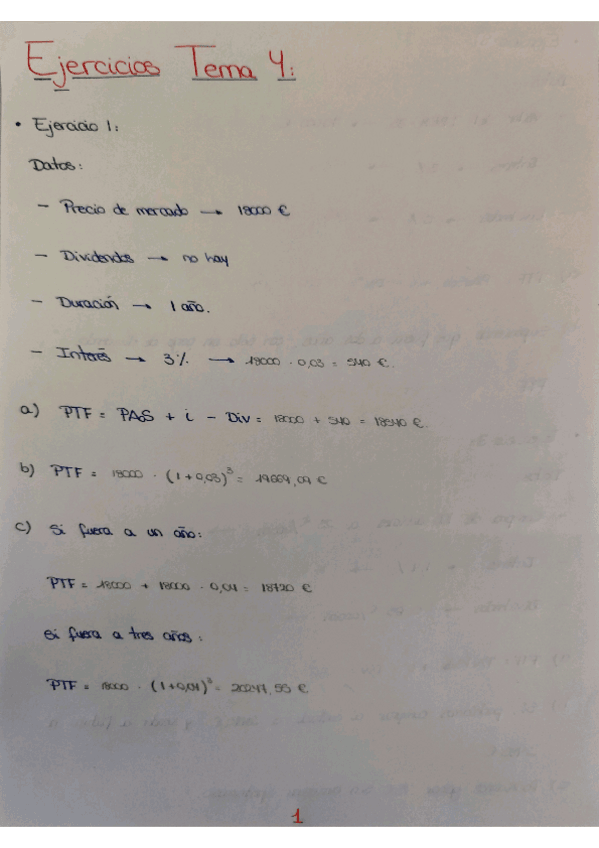 Ejercicios Tema 4:
• Ejercicio 1:
Datos:
- Precio de mercado → 18000 €
- Dividendos → no hay
- Duración → 1 año.
- Interés → 3% → 18000 · 0,03 = 540 €.
a) PTF = PAS + i - Div = 18000 + 540 = 18540 €.
b) PTF = 18000 · (1+0,03)³ = 19669,09 €
c) Si fuera a un año:
PTF = 18000 + 18000 · 0,04 = 18720 €
si fuera a tres años:
PTF = 18000 · (1+0,04)³ = 20247,55 €
1